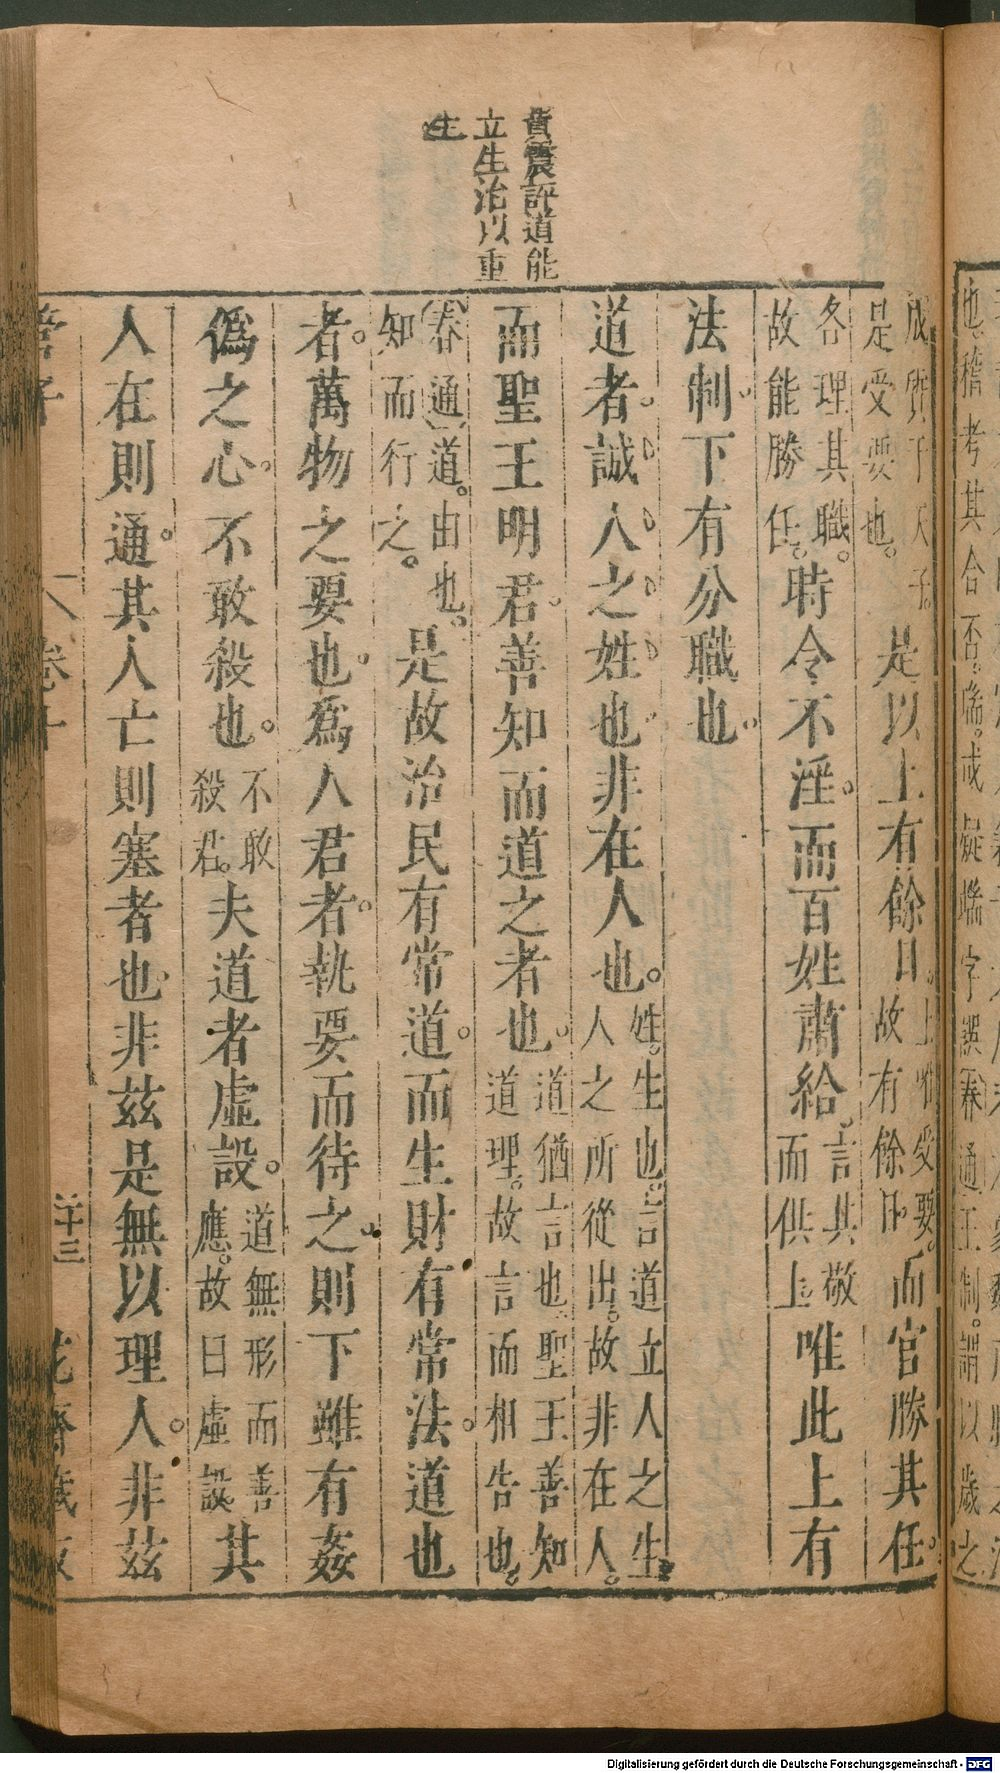 黃震評道能
立生治以重
生
成質于天子。
是受要也。
是以上有餘日。
上唯受要。
故有餘日。
而官勝其任。
各理其職。
故能勝任。
時令不淫。而百姓肅給。
言其敬
而供上
唯此上有
法制。下有分職也。
道者。誠人之姓也。非在人也。
姓。生也。言道立人之生。
人之所從出。故非在人。
而聖王明君。善知而道之者也。
道猶言也。聖王善知
道理。故言而相告也。
(春通)道。由也。
知而行之。
是故治民有常道。而生財有常法。道也
者。萬物之要也。爲人君者。執要而待之。則下雖有姦
僞之心。不敢殺也。
不敢
殺君。
夫道者虛設。
道無形而善
應。故曰虛設。
其
人在則通。其人亡則塞者也。非茲是無以理人。非茲
管子
卷十
廿三
花齋藏板
也。稽考其合否。
席。或疑㡣字誤
通王制。謂以歲之
Digitalisierung gefördert durch die Deutsche Forschungsgemeinschaft - DFG